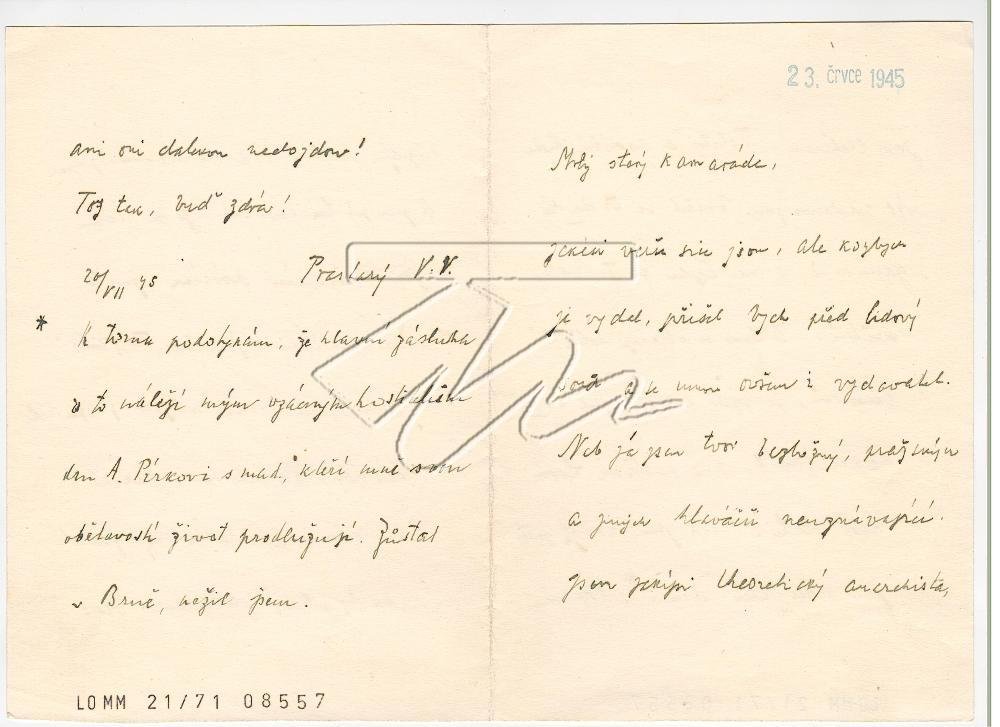 23. črvce 1945
Milý starý kamaráde,
jakési verše sice jsou, ale kdybych
je vydal, přišel bych před lidový
soud a se mnou ovšem i vydavatel.
Neb já jsem tvor bezbožný, pražádných
a jiných hlaváčů neuznávající.
Jsem jakýsi theoretický anarchista,
ani oni daleko nedojdou!
Tož tak, buď zdráv!
20/VII 45 Prastarý V. V.
* K tomu podotýkám, že hlavní zásluha
o to náleží mým vzácným hostitelům
dru A. Pírkovi s mad., kteří mně svou
obětavostí život prodlužují. Zůstat
v Brně, nežil jsem.
LOMM 21/71 08557